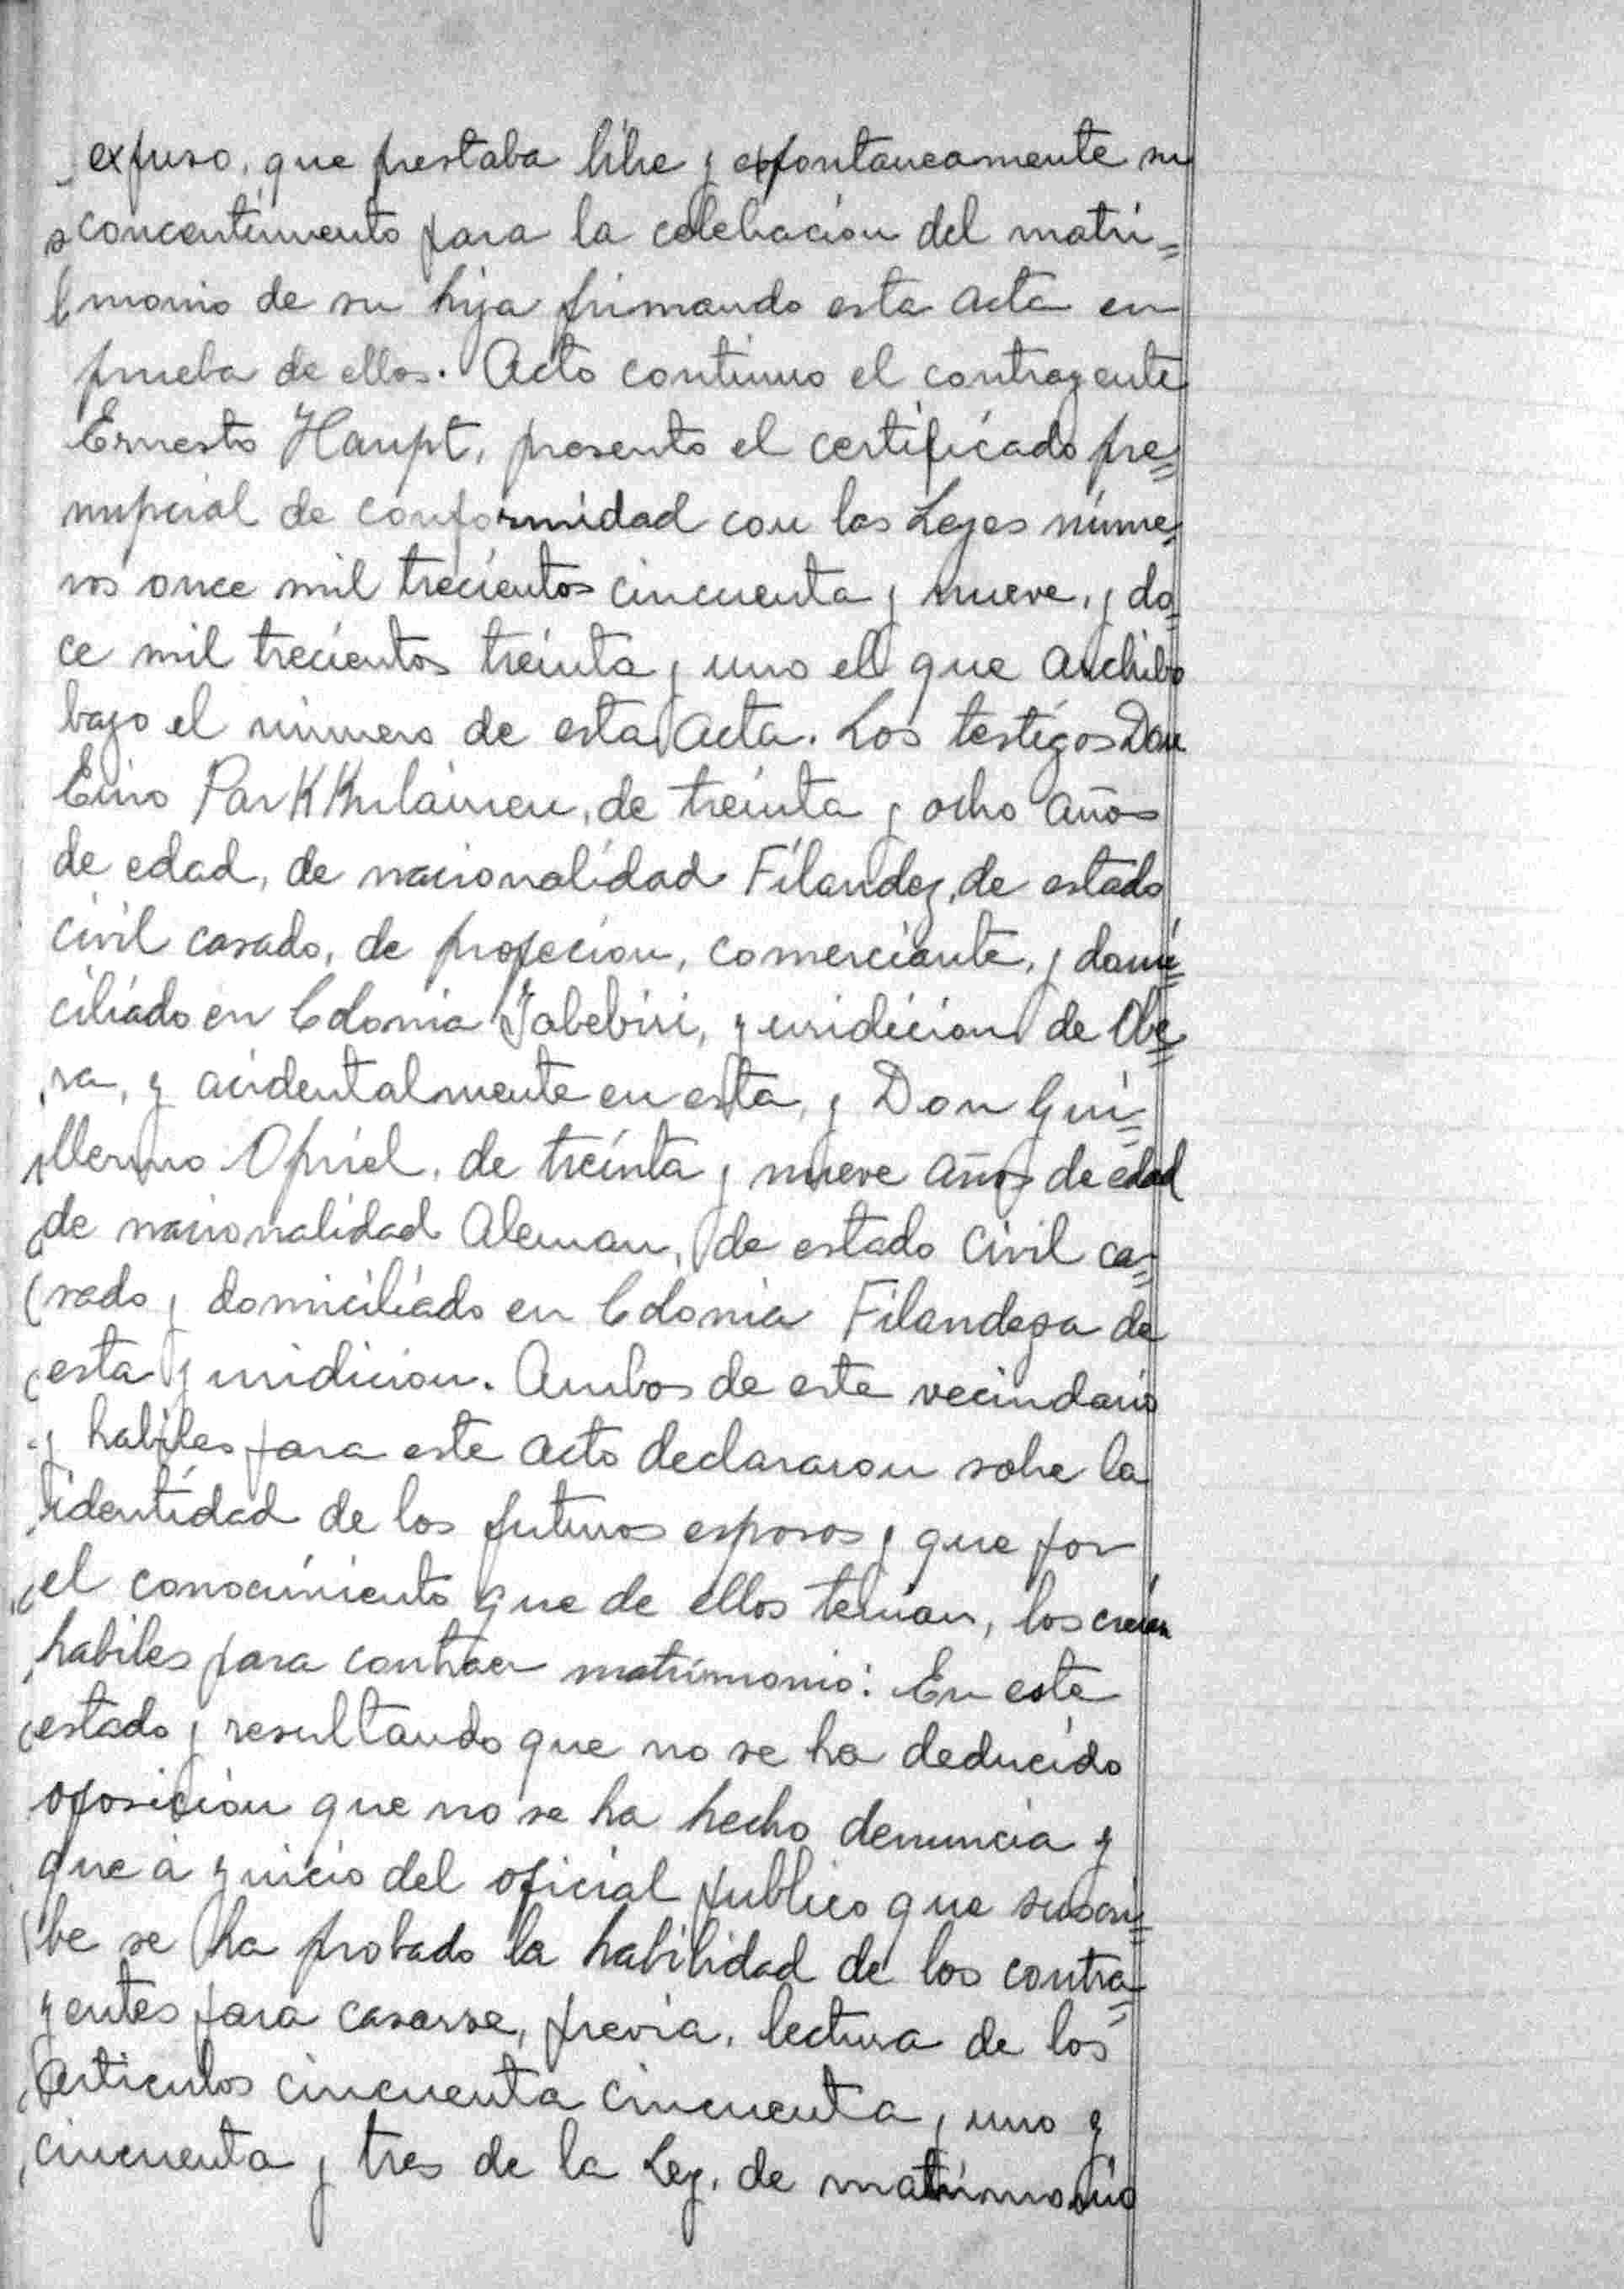 expuso, que prestaba libre y expontaneamente su
concentimento para la celebración del matri=
monio de su hija firmando esta acta en
prueba de ellos. Acto continuo el contrayente
Ernesto Haupt, presento el certificado pre=
nupcial de conformidad con las Leyes núme=
ros once mil trecientos cincuenta y nueve, y do=
ce mil trecientos treinta y uno el que archibo
bajo el número de esta Acta. Los testigos Don
Eino ParKKulainen, de treinta y ocho años
de edad, de nacionalidad Filandez, de estado
civil casado, de profecion, comerciante, y domi=
ciliado en Colonia Yabebiri, yuridicion de Obe=
ra, y acidentalmente en esta, y Don Gui=
llermo Opriel, de treinta y nueve años de edad
de nacionalidad Aleman, de estado civil ca=
sado y domiciliado en Colonia Filandeza de
esta yuridicion. Ambos de este vecindario
y habiles para este acto declararon sobre la
identidad de los futuros esposos y que por
el conocimiento que de ellos tenian, los creian
habiles para contraer matrimonio: En este
estado y resultando que no se ha deducido
oposición que no se ha hecho denuncia y
que á yuicio del oficial publico que suscri=
be se ha probado la habilidad de los contra=
yentes para casarse, previa, lectura de los
articulos cincuenta cincuenta y uno y
cincuenta y tres de la Ley, de matrimonio